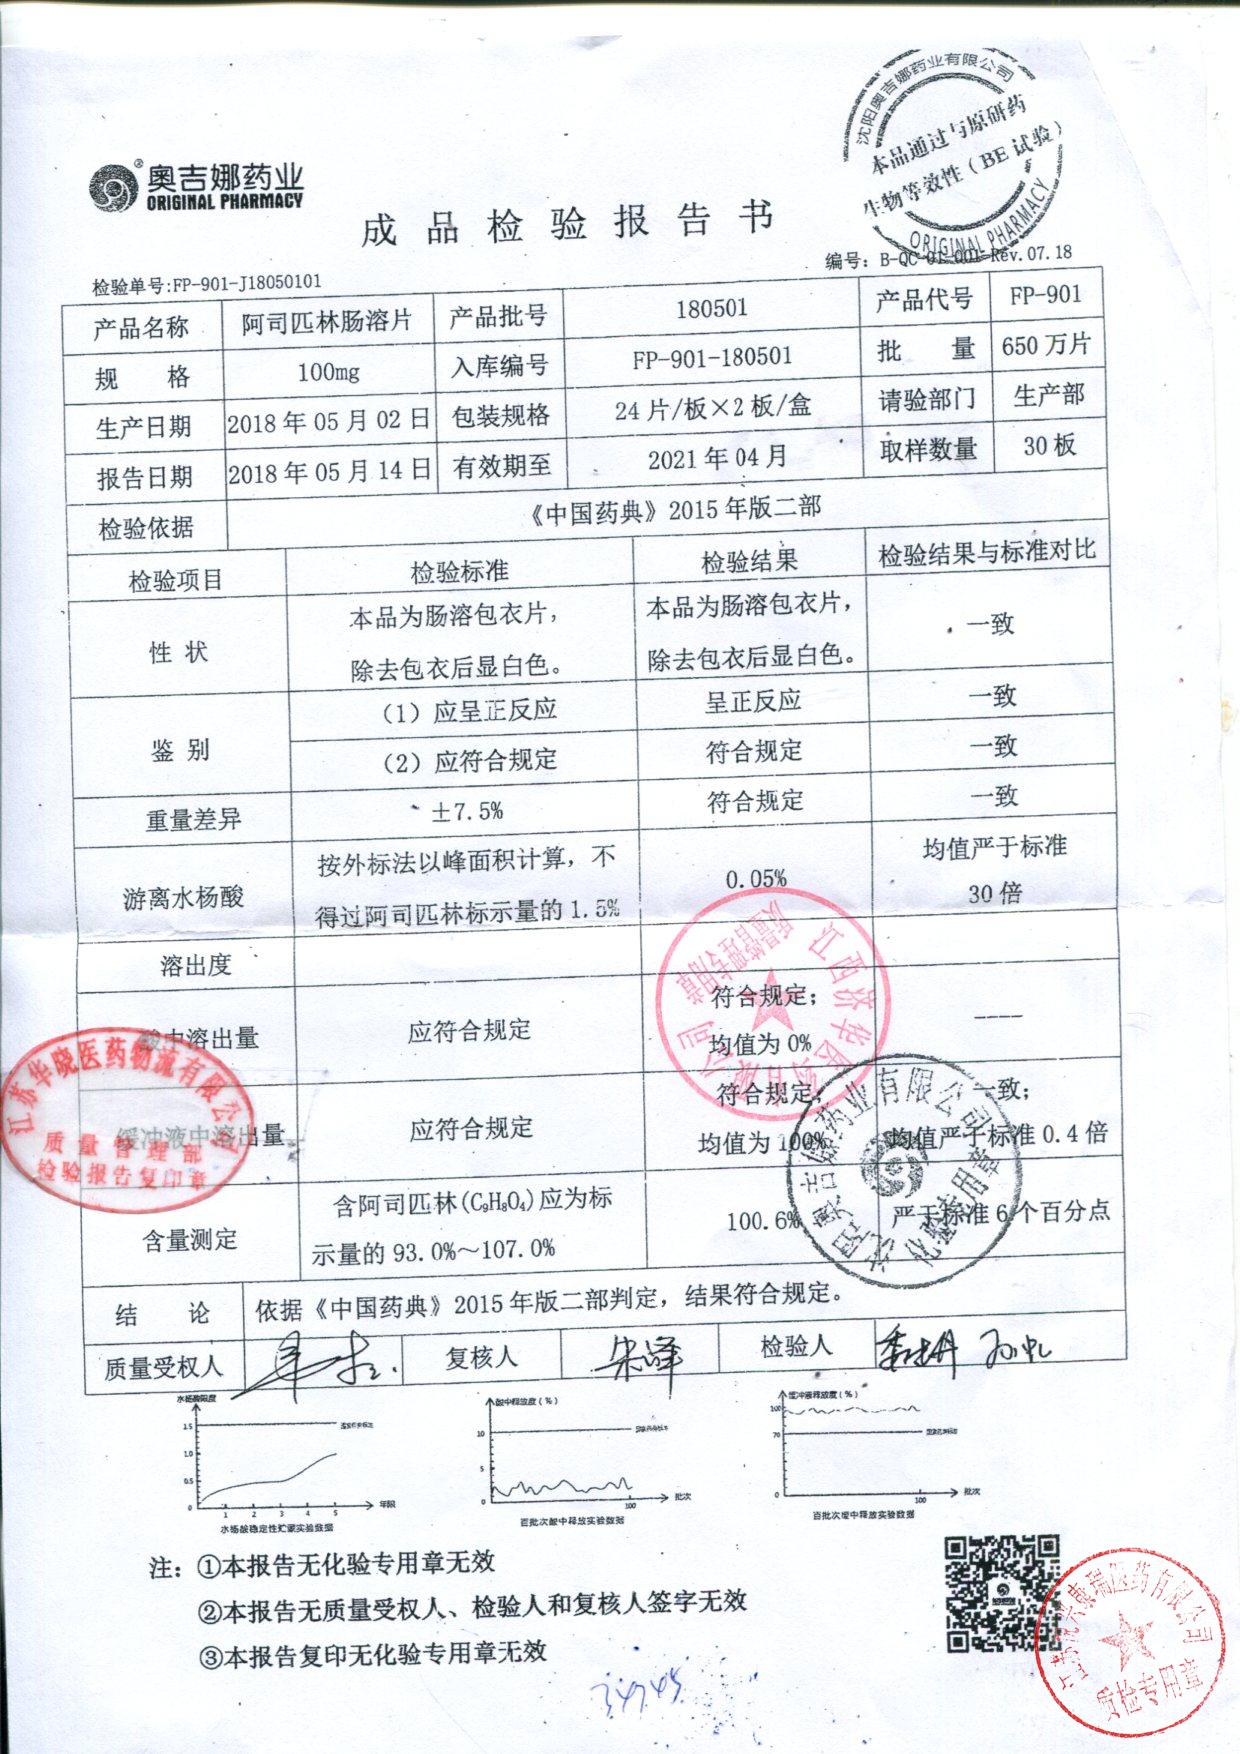 沈阳奥吉娜药业有限公司
本品通过与原研药
生物等效性（BE试验）
ORIGINAL PHARMACY
奥吉娜药业
ORIGINAL PHARMACY
成品检验报告书
检验单号:FP-901-J18050101
编号：B-QC-01-001-Rev.07.18
产品名称 阿司匹林肠溶片 产品批号 180501 产品代号 FP-901
规 格 100mg 入库编号 FP-901-180501 批 量 650万片
生产日期 2018年05月02日 包装规格 24片/板×2板/盒 请验部门 生产部
报告日期 2018年05月14日 有效期至 2021年04月 取样数量 30板
检验依据 《中国药典》2015年版二部
检验项目 检验标准 检验结果 检验结果与标准对比
性 状 本品为肠溶包衣片， 本品为肠溶包衣片， 一致
除去包衣后显白色。 除去包衣后显白色。
鉴 别 （1）应呈正反应 呈正反应 一致
（2）应符合规定 符合规定 一致
重量差异 ±7.5% 符合规定 一致
游离水杨酸 按外标法以峰面积计算，不 0.05% 均值严于标准
得过阿司匹林标示量的1.5% 30倍
溶出度
酸中溶出量 应符合规定 符合规定； ----
均值为0%
缓冲液中溶出量 应符合规定 符合规定； 一致；
均值为100% 均值严于标准0.4倍
含量测定 含阿司匹林(C₉H₈O₄)应为标 100.6% 严于标准6个百分点
示量的93.0%～107.0%
结 论 依据《中国药典》2015年版二部判定，结果符合规定。
质量受权人 复核人 朱峰 检验人
江西济华医药有限公司
质量管理专用章
江苏华晓医药物流有限公司
质量管理部
检验报告复印章
沈阳奥吉娜药业有限公司
化验专用章
水杨酸限度
1.5
1.0
0.5
0
1 2 3 4 5 年限
水杨酸稳定性贮藏实验数据
酸中释放度（%）
10
5
0
100 批次
百批次酸中释放实验数据
缓冲液释放度（%）
100
70
0
100 批次
百批次缓中释放实验数据
注：①本报告无化验专用章无效
②本报告无质量受权人、检验人和复核人签字无效
③本报告复印无化验专用章无效
质检专用章
34745